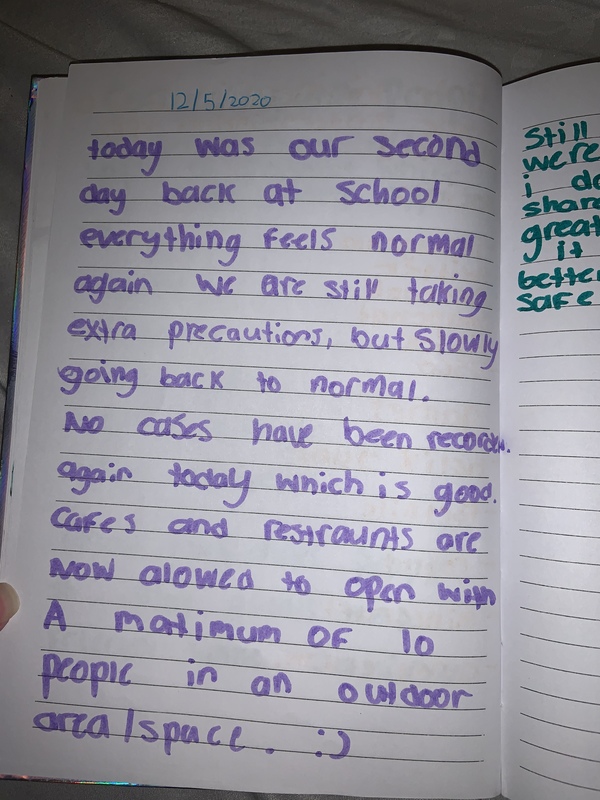 12/5/2020
today was our second
day back at School
everything feels normal
again we are still taking
extra precautions, but Slowly
going back to normal.
No cases have been
again today which is good.
Cafes and restraunts are
Now alowed to open with
A matimum OF 10
people in an outdoor
area/space. :)
Still
were
i do
share
great
it
better
safe